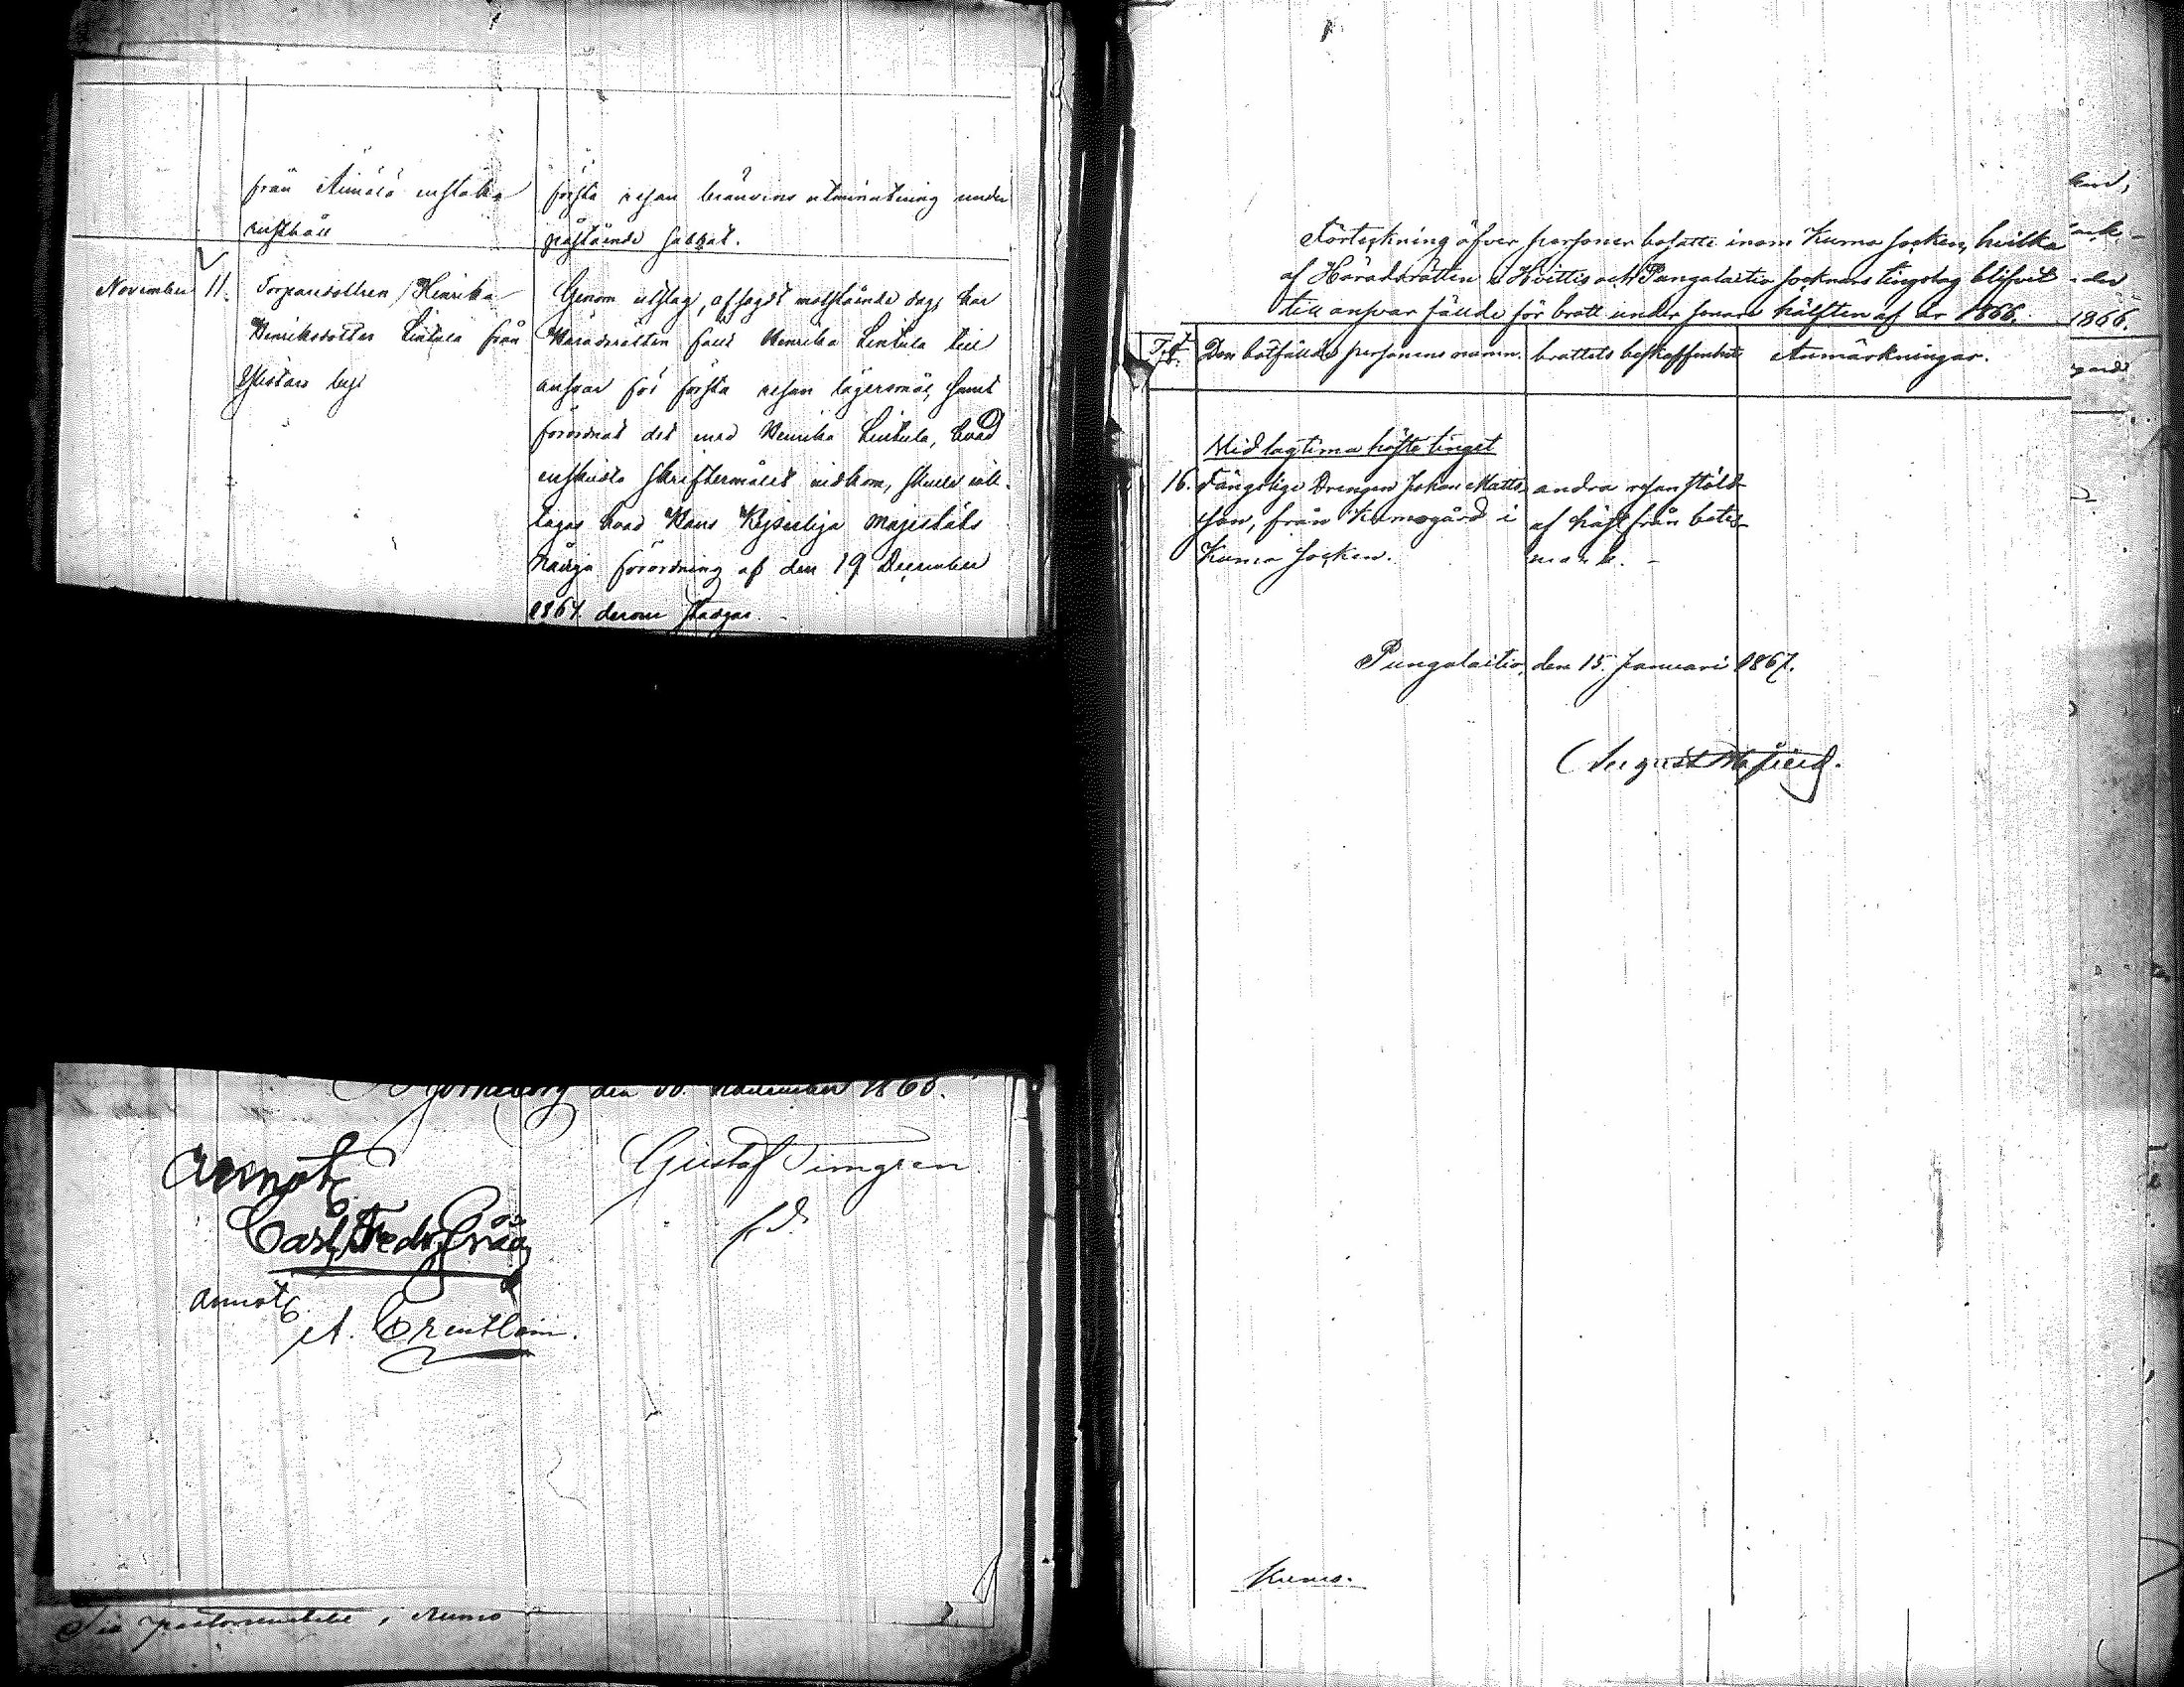 från Aimälä enstaka
rusthåll
första resan bränvins utminutering under
påstående sabbat.
November 11. Torparedottren Henrika
Henriksdotter Lintula från
by
Genom utslag, afsagdt motstående dag, har
Häradsrätten fält Henrika Lintula till
ansvar för första resan lägersmål, samt
förordnat det med Henrika Lintula, hvad
enskildta skriftermålet vidkom, skulle iakt-
tagas hvad Hans Kejserliga Majestäts
Nådiga förordning af den 19 December
1864 derom stadgar. -
Björneborg den 30. November 1866.
Gustaf Timgren
annot
Carl Fedr.
annot
A.
Till pastorsembetet i Kumo
Förteckning öfver personer bosatte inom Kumo socken, hvilka
af Häradsrätten i Hvittis och Pungalaitio socknars tingslag blifvit
till ansvar fälde för brott under senare hälften af år 1866.
Den botfällde personens namn. brottets beskaffenhet Anmärkningar.
1866.
Vid lagtima höstetinget
16. Fängslige Drengen Johan Matts-
son, från Kumogård i
Kumo socken.
andra resan stöld
af häst från betes-
mark. -
Pungalaitio, den 15. Januari 1867.
August
Kumo.